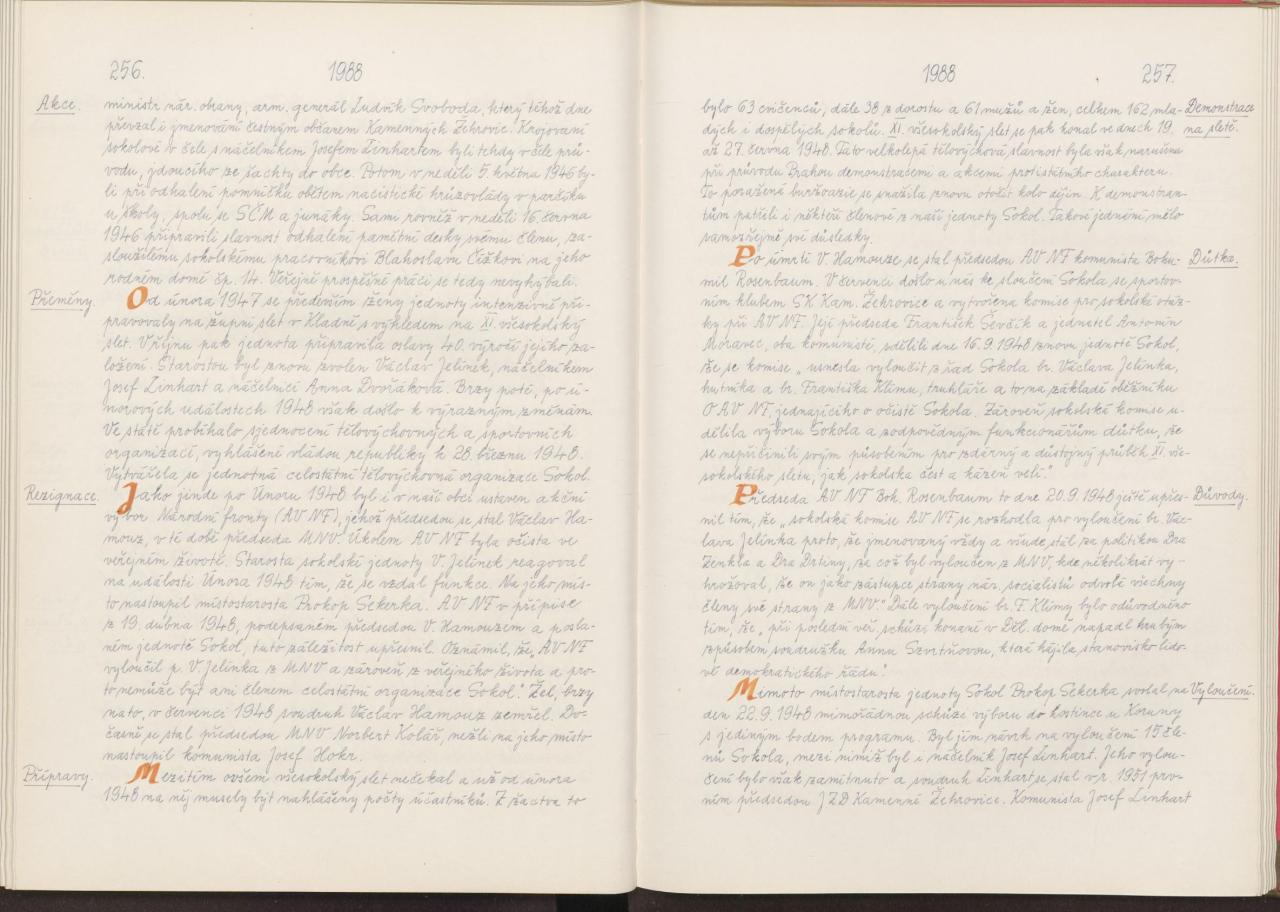 256. 1988
Akce.
ministr nár. obrany, arm. generál Ludvík Svoboda, který téhož dne
převzal i jmenování čestným občanem Kamenných Žehrovic. Krojovaní
sokolové v čele s náčelníkem Josefem Linhartem byli tehdy v čele prů-
vodu, jdoucího ze šachty do obce. Potom v neděli 5. května 1946 by-
li při odhalení pomníčku obětem nacistické hrůzovlády v parčíku
u školy, spolu se SČM a junáky. Sami rovněž v neděli 16. června
1946 připravili slavnost odhalení pamětní desky svému členu, za-
sloužilému sokolskému pracovníkovi Blahoslavu Čížkovi na jeho
rodném domě čp. 14. Veřejně prospěšné práci se tedy nevyhýbali.
Přeměny.
Od února 1947 se především ženy jednoty intenzivně při-
pravovaly na župní slet v Kladně s výhledem na XI. všesokolský
slet. V říjnu pak jednota připravila oslavy 40. výročí jejího za-
ložení. Starostou byl znovu zvolen Václav Jelínek, náčelníkem
Josef Linhart a náčelnicí Anna Dvořáková. Brzy poté, po ú-
norových událostech 1948 však došlo k výrazným změnám.
Ve státě probíhalo sjednocení tělovýchovných a sportovních
organizací, vyhlášené vládou republiky k 28. březnu 1948.
Vytvářela se jednotná celostátní tělovýchovná organizace Sokol.
Rezignace.
Jako jinde po Únoru 1948 byl i v naší obci ustaven akční
výbor Národní fronty (AV NF), jehož předsedou se stal Václav Ha-
mouz, v té době předseda MNV. Úkolem AV NF byla očista ve
veřejném životě. Starosta sokolské jednoty V. Jelínek reagoval
na události Února 1948 tím, že se vzdal funkce. Na jeho mís-
to nastoupil místostarosta Prokop Sekerka. AV NF v přípise
z 19. dubna 1948, podepsaném předsedou V. Hamouzem a posla-
ném jednotě Sokol, tuto záležitost upřesnil. Oznámil, že „AV NF
vyloučil p. V. Jelínka z MNV a zároveň z veřejného života a pro-
to nemůže být ani členem celostátní organizace Sokol.“ Žel, brzy
nato, v červenci 1948 soudruh Václav Hamouz zemřel. Do-
časně se stal předsedou MNV Norbert Kolář, nežli na jeho místo
nastoupil komunista Josef Hokr.
Přípravy.
Mezitím ovšem všesokolský slet nečekal a už od února
1948 na něj musely být nahlášeny počty účastníků. Z žactva to
1988 257.
bylo 63 cvičenců, dále 38 z dorostu a 61 mužů a žen, celkem 162 mla-
Demonstrace
na sletě.
dých i dospělých sokolů. XI. všesokolský slet se pak konal ve dnech 19.
až 27. června 1948. Tato velkolepá tělovýchovná slavnost byla však narušena
při průvodu Prahou demonstracemi a akcemi protistátního charakteru.
To poražená buržoazie se snažila znovu otočit kolo dějin. K demonstran-
tům patřili i někteří členové z naší jednoty Sokol. Takové jednání mělo
samozřejmě své důsledky.
Důtka.
Po úmrtí V. Hamouze se stal předsedou AV NF komunista Bohu-
mil Rosenbaum. V červenci došlo u nás ke sloučení Sokola se sportov-
ním klubem SK Kam. Žehrovice a vytvořena komise pro sokolské otáz-
ky při AV NF. Její předseda František Ševčík a jednatel Antonín
Moravec, oba komunisté, sdělili dne 16. 9. 1948 znovu jednotě Sokol,
že se komise „usnesla vyloučit z řad Sokola br. Václava Jelínka,
hutníka a br. Františka Klímu, truhláře a to na základě oběžníku
OAV NF, jednajícího o očistě Sokola. Zároveň sokolská komise u-
dělila výboru Sokola a zodpovědným funkcionářům důtku, že
se nepřičinili svým působením pro zdárný a důstojný průběh XI. vše-
sokolského sletu, jak sokolská čest a kázeň velí.“
Důvody.
Předseda AV NF Boh. Rosenbaum to dne 20. 9. 1948 ještě upřes-
nil tím, že „sokolská komise AV NF se rozhodla pro vyloučení br. Vác-
lava Jelínka proto, že jmenovaný vždy a všude stál za politikou Dra
Zenkla a Dra Drtiny, za což byl vyloučen z MNV, kde několikrát vy-
hrožoval, že on jako zástupce strany nár. socialistů odvolá všechny
členy své strany z MNV.“ Dále vyloučení br. F. Klímy bylo odůvodněno
tím, že „při poslední veř. schůzi, konané v Děl. domě napadl hrubým
způsobem soudružku Annu Szvrtňovou, která hájila stanovisko lido-
vě demokratického řádu.“
Vyloučení.
Mimoto místostarosta jednoty Sokol Prokop Sekerka svolal na
den 22. 9. 1948 mimořádnou schůzi výboru do hostince u Koruny
s jediným bodem programu. Byl jím návrh na vyloučení 15 čle-
nů Sokola, mezi nimiž byl i náčelník Josef Linhart. Jeho vylou-
čení bylo však zamítnuto a soudruh Linhart se stal v r. 1951 prv-
ním předsedou JZD Kamenné Žehrovice. Komunista Josef Linhart